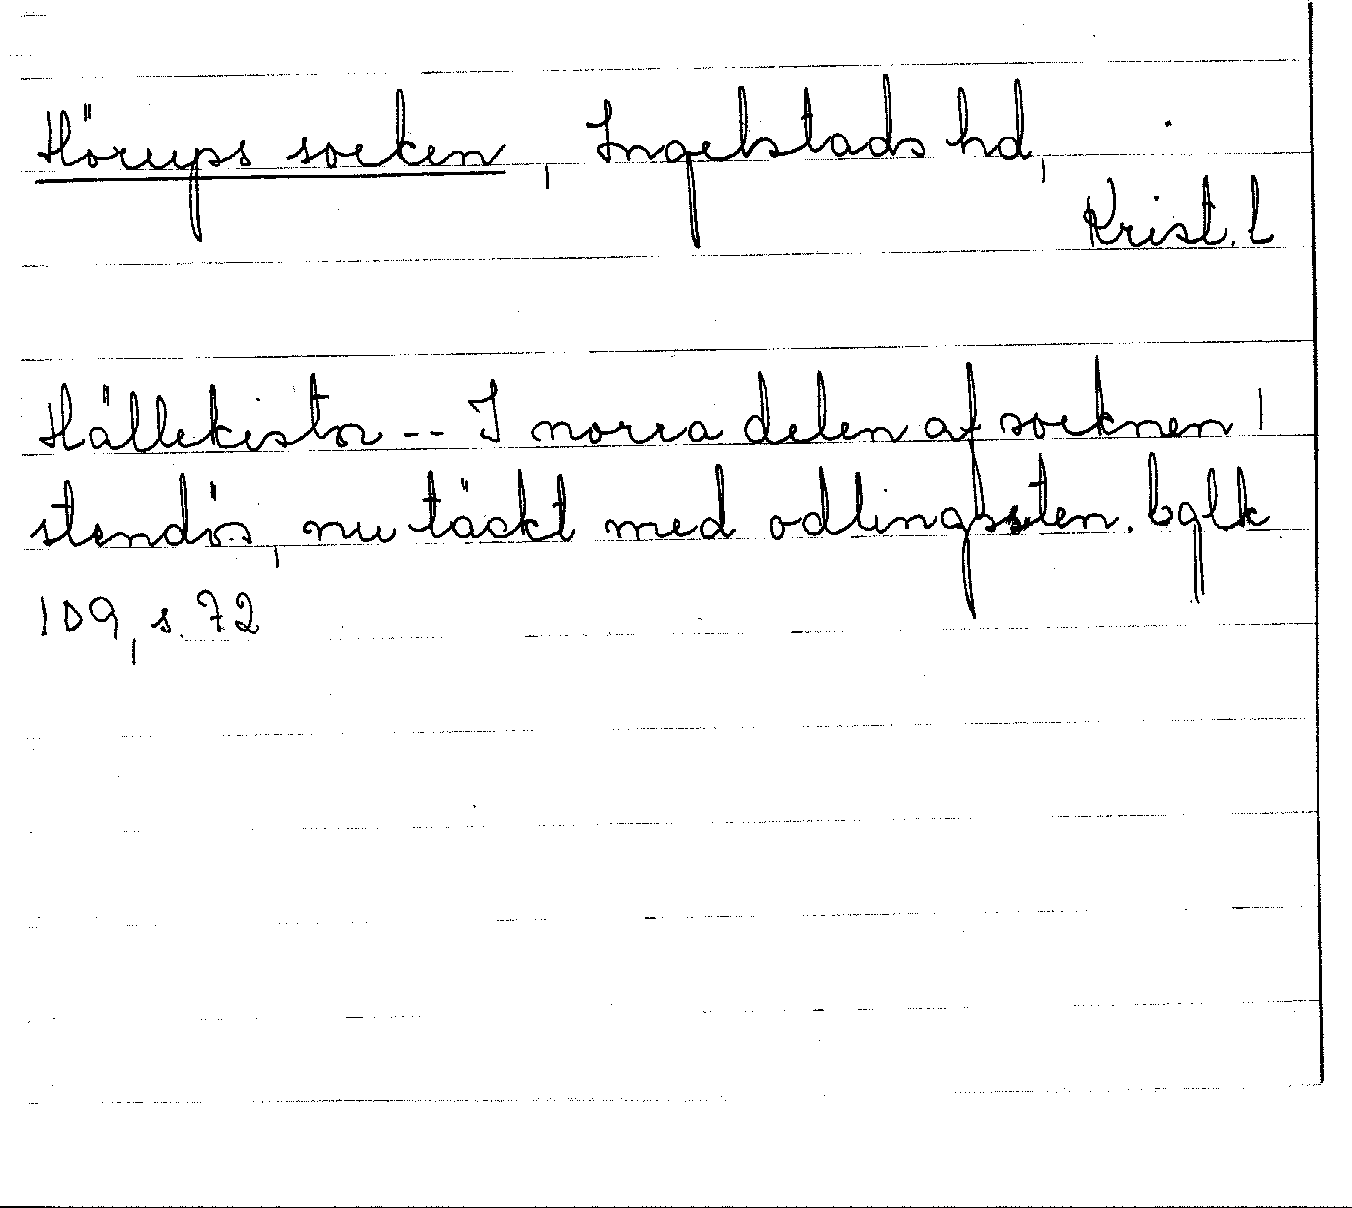 Hörups socken, Ingelstads hd,
Krist. l
Hällekistor -- I norra delen af socknen 1
stendös, nu täckt med odlingssten. bglk
109, s. 72